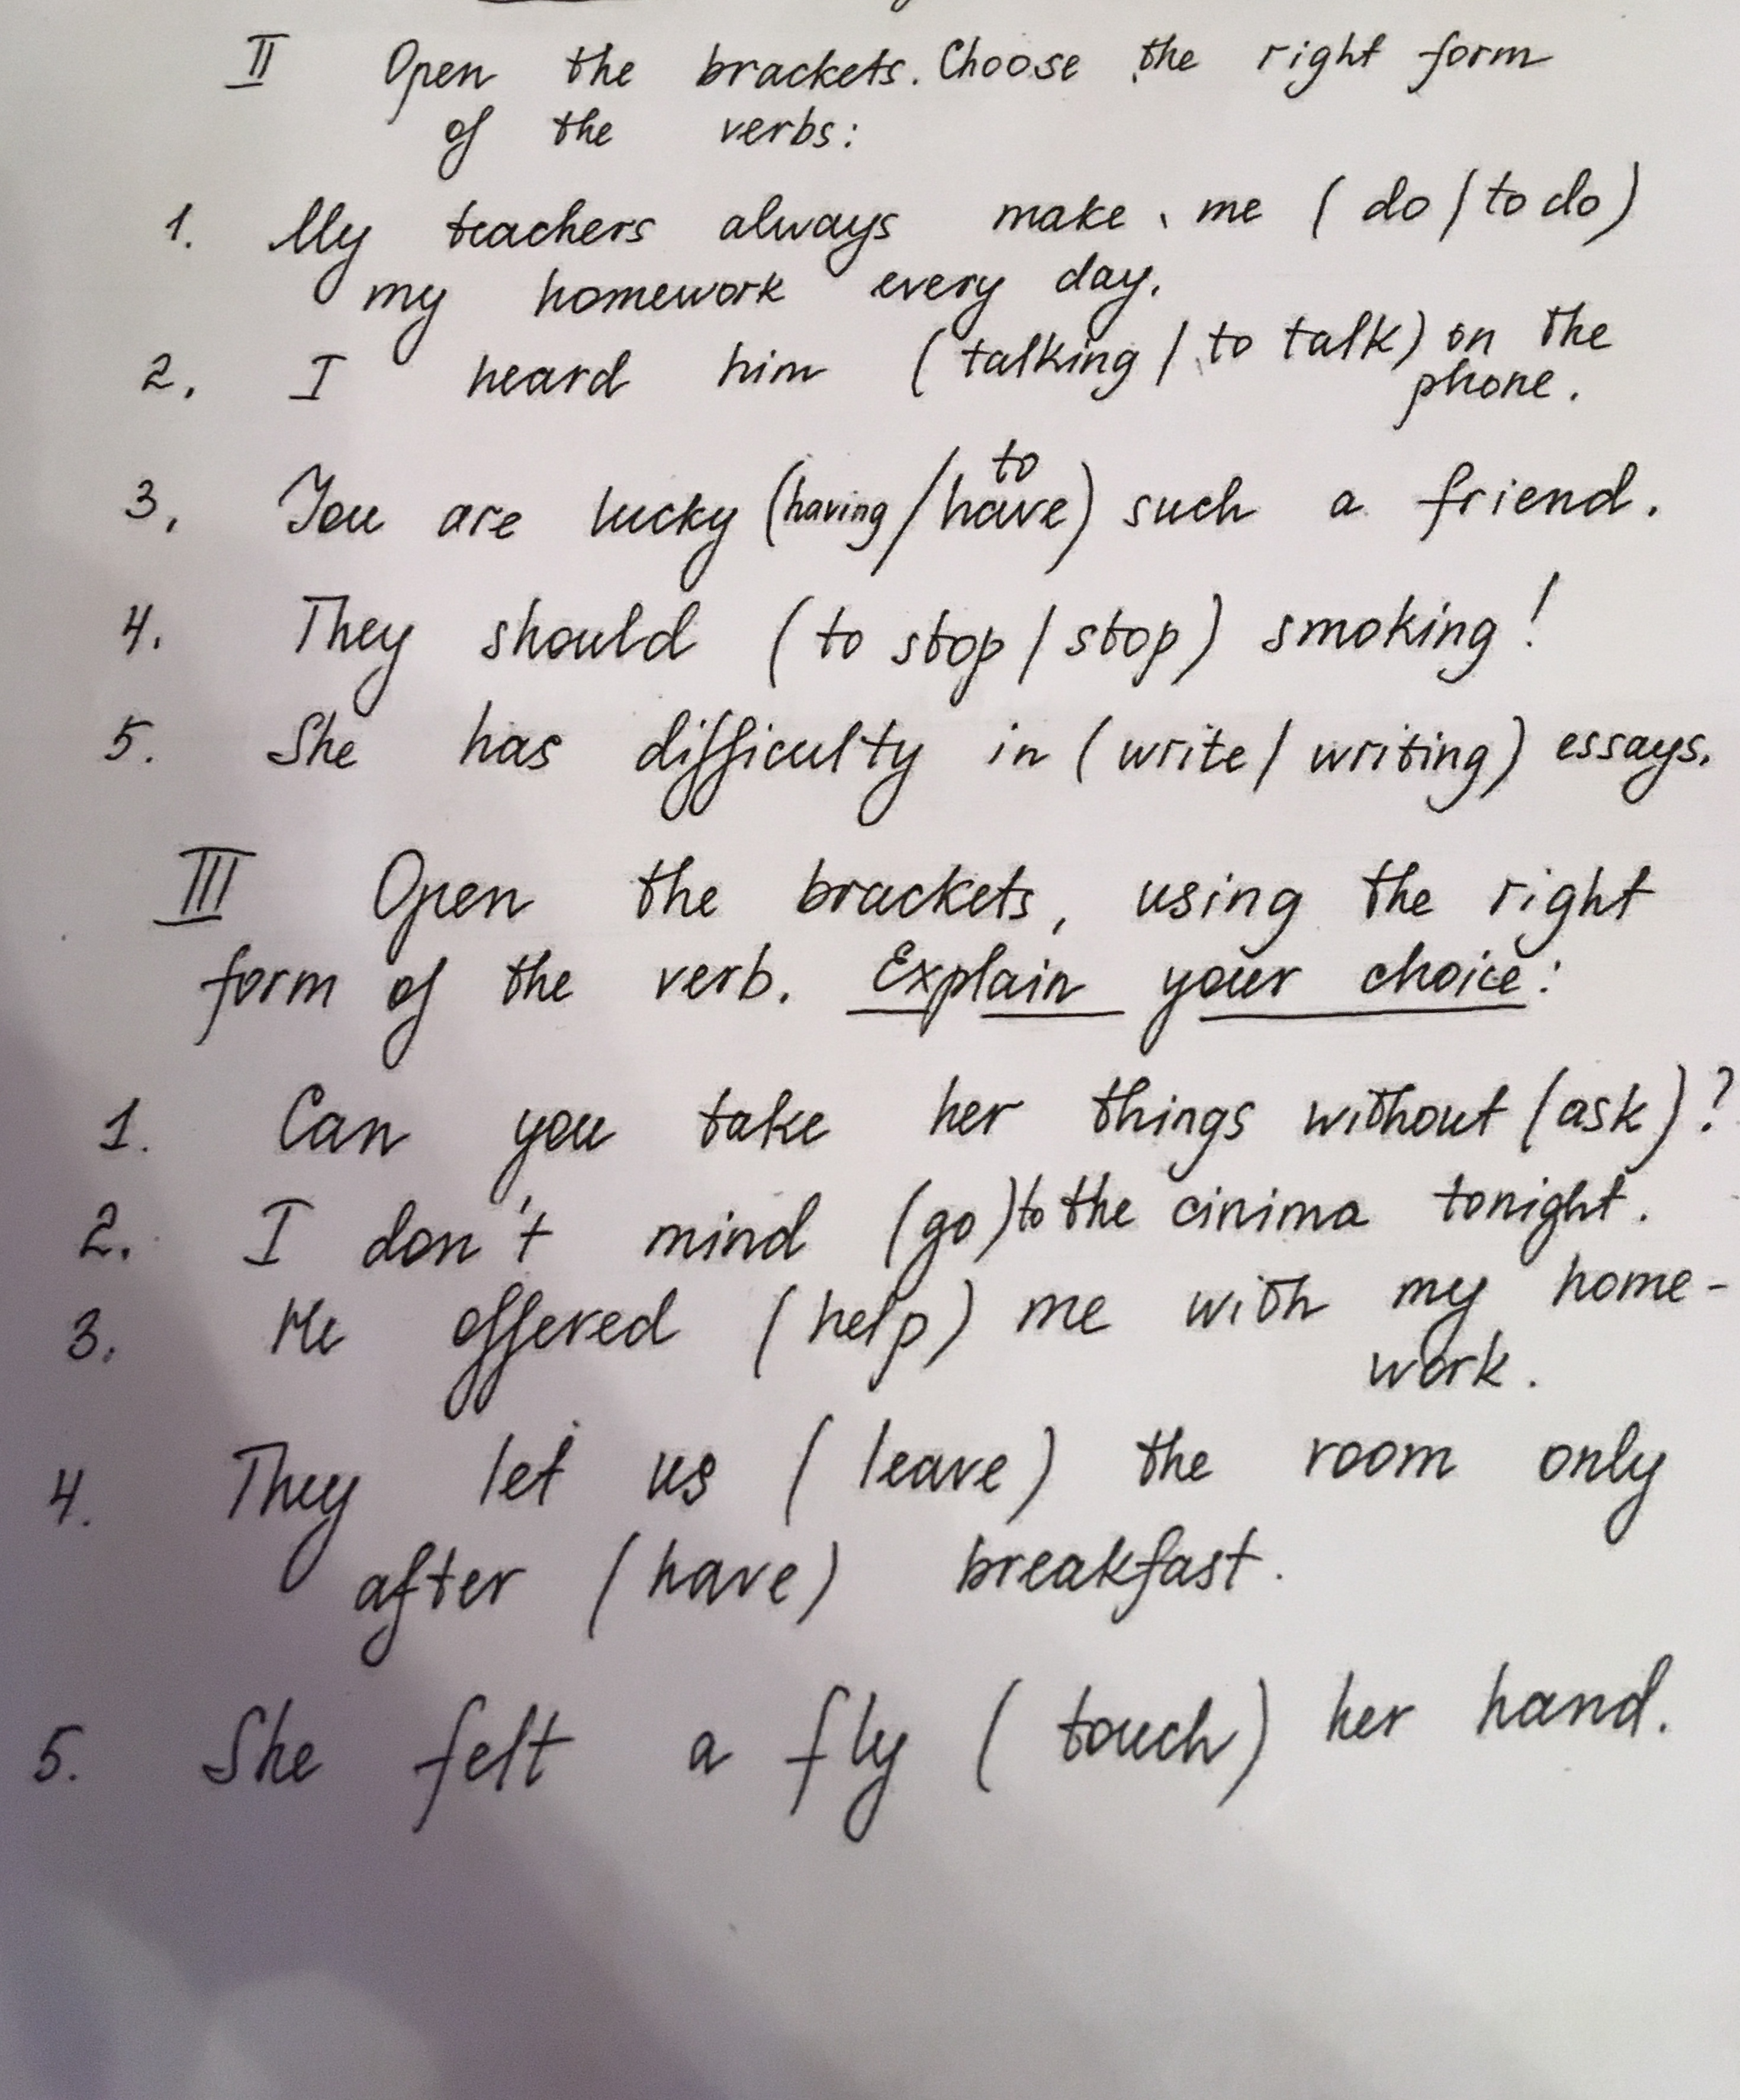 II Open the brackets. Choose the right form
of the verbs:
1. My teachers always make me ( do / to do )
my homework every day.
2. I heard him ( talking / to talk ) on the
phone.
to
3. You are lucky (having / have) such a friend.
4. They should ( to stop / stop ) smoking!
5. She has difficulty in ( write / writing ) essays.
III Open the brackets, using the right
form of the verb. Explain your choice:
1. Can you take her things without (ask)?
2. I don't mind (go) to the cinima tonight.
3. He offered (help) me with my home-
work.
4. They let us ( leave ) the room only
after (have) breakfast.
5. She felt a fly ( touch ) her hand.